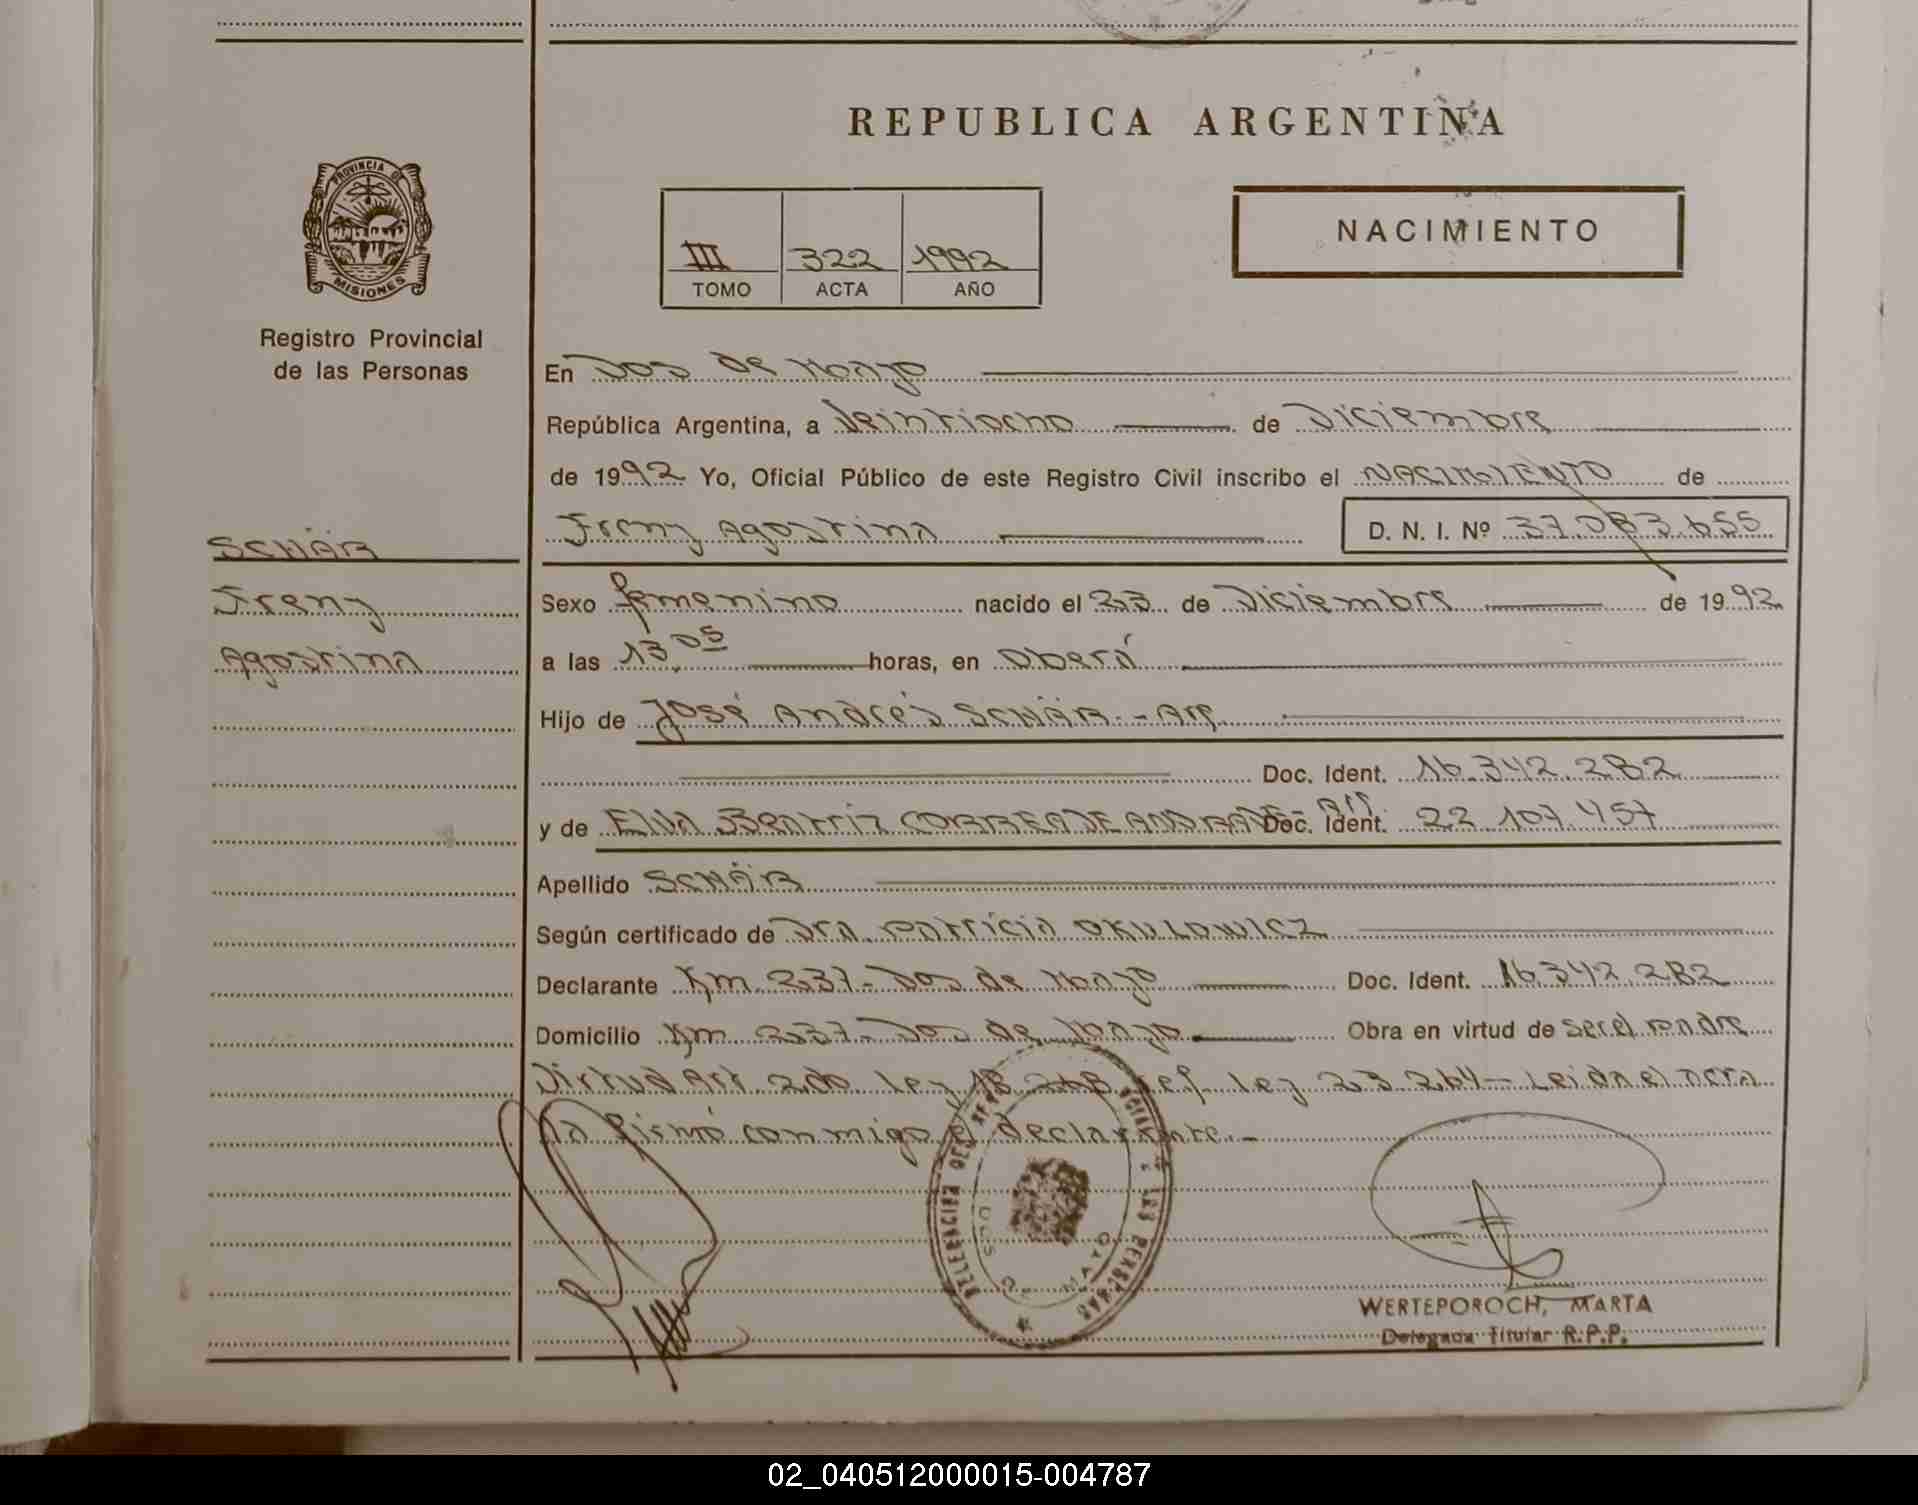 REPUBLICA ARGENTINA
PROVINCIA DE
MISIONES
Registro Provincial
de las Personas
III 322 1992
TOMO ACTA AÑO
NACIMIENTO
En Dos de Mayo
República Argentina, a Veintiocho de Diciembre
de 1992 Yo, Oficial Público de este Registro Civil inscribo el NACIMIENTO de
Agostina D. N. I. Nº 37.083.655
SCHÄR
Agostina
Sexo femenino nacido el 23 de Diciembre de 1992
a las 13,05 horas, en Oberá
Hijo de José Andrés SCHÄR - Arg.
Doc. Ident. 16.342.282
y de Elva Beatriz CORREA DE ANDRADE - Arg. Doc. Ident. 22.107.457
Apellido SCHÄR
Según certificado de Dra. Patricia OKULOWICZ
Declarante Km. 237 - Dos de Mayo Doc. Ident. 16.342.282
Domicilio Km 237 - Dos de Mayo Obra en virtud de ser el padre
Virtud Art. 2do Ley 18.248 Ley 23.264 - Leida el acta
la firmó conmigo el declarante. -
DOS DE MAYO
WERTEPOROCH, MARTA
Delegada Titular R.P.P.
02_040512000015-004787